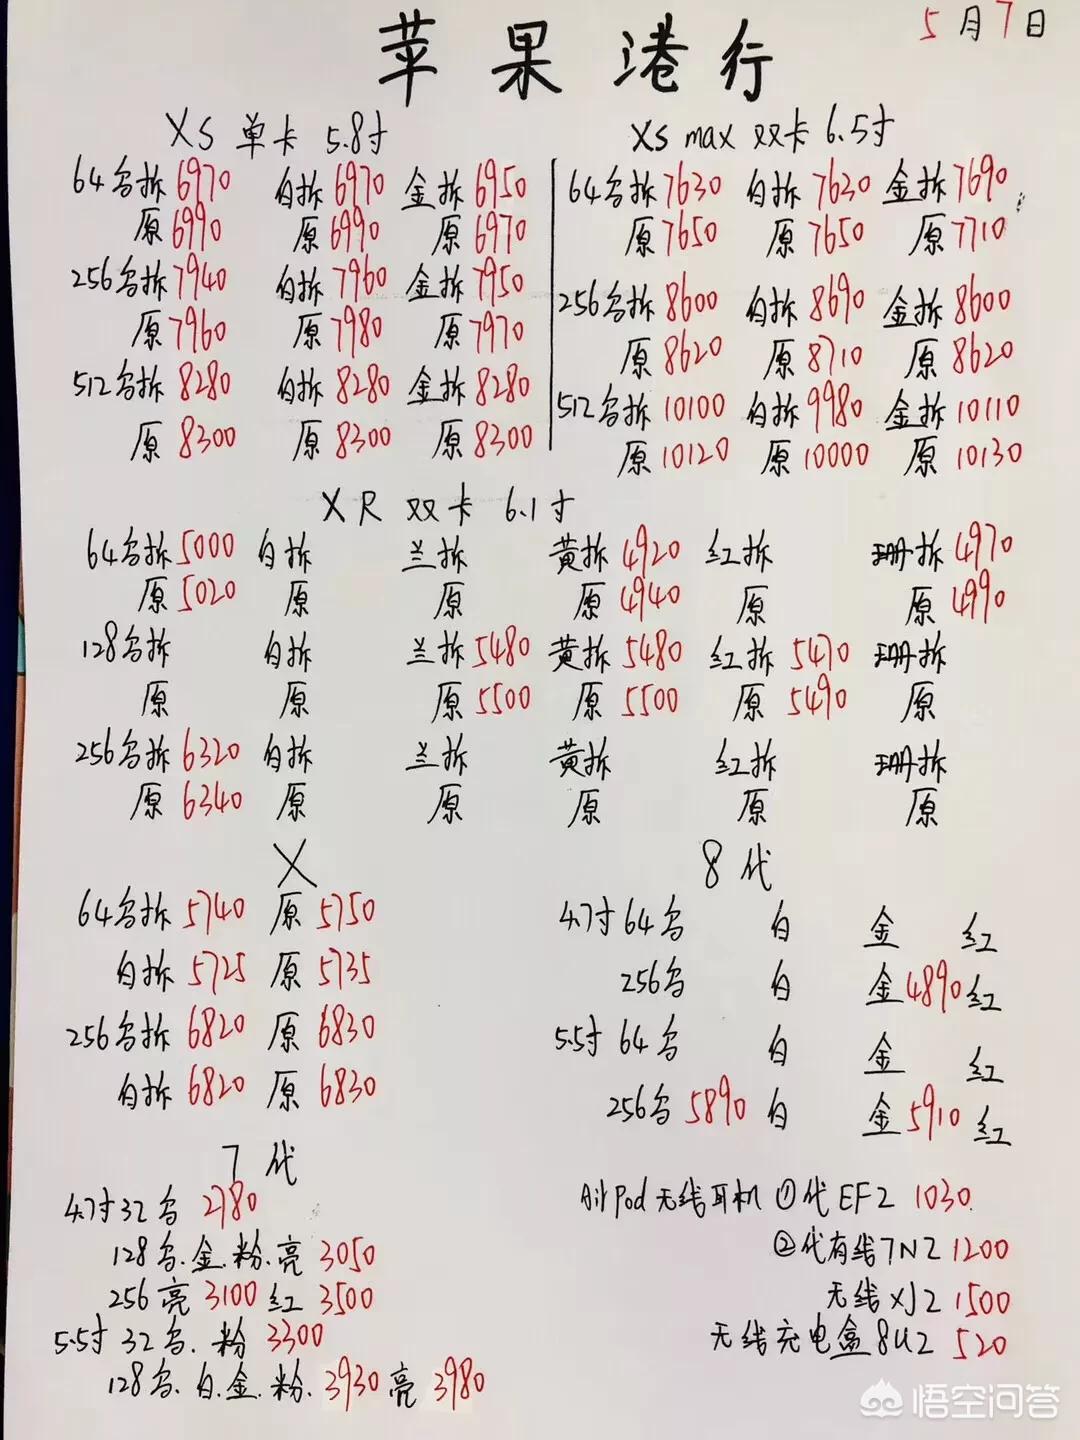 5月7日
苹果港行
XS 单卡 5.8寸
64乌拆6970 白拆6970 金拆6950
原6990 原6990 原6970
256乌拆7940 白拆7960 金拆7950
原7960 原7980 原7970
512乌拆8280 白拆8280 金拆8280
原8300 原8300 原8300
XS max 双卡 6.5寸
64乌拆7630 白拆7630 金拆7690
原7650 原7650 原7710
256乌拆8600 白拆8690 金拆8600
原8620 原8710 原8620
512乌拆10100 白拆9980 金拆10110
原10120 原10000 原10130
XR 双卡 6.1寸
64乌拆5000 白拆 兰拆 黄拆4920 红拆 珊拆4970
原5020 原 原 原4940 原 原4990
128乌拆 白拆 兰拆5480 黄拆5480 红拆5470 珊拆
原 原 原5500 原5500 原5490 原
256乌拆6320 白拆 兰拆 黄拆 红拆 珊拆
原6340 原 原 原 原 原
X
64乌拆5740 原5750
白拆5725 原5735
256乌拆6820 原6830
白拆6820 原6830
8代
4.7寸64乌 白 金 红
256乌 白 金4890 红
5.5寸64乌 白 金 红
256乌5890 白 金5910 红
7代
4.7寸32乌 2780
128乌.金.粉.亮 3050
256亮 3100 红 3500
5.5寸32乌.粉 3300
128乌.白.金.粉.3930 亮 3980
AirPod无线耳机 ①代EF2 1030.
②代有线7N2 1200
无线XJ2 1500
无线充电盒8U2 520
悟空问答